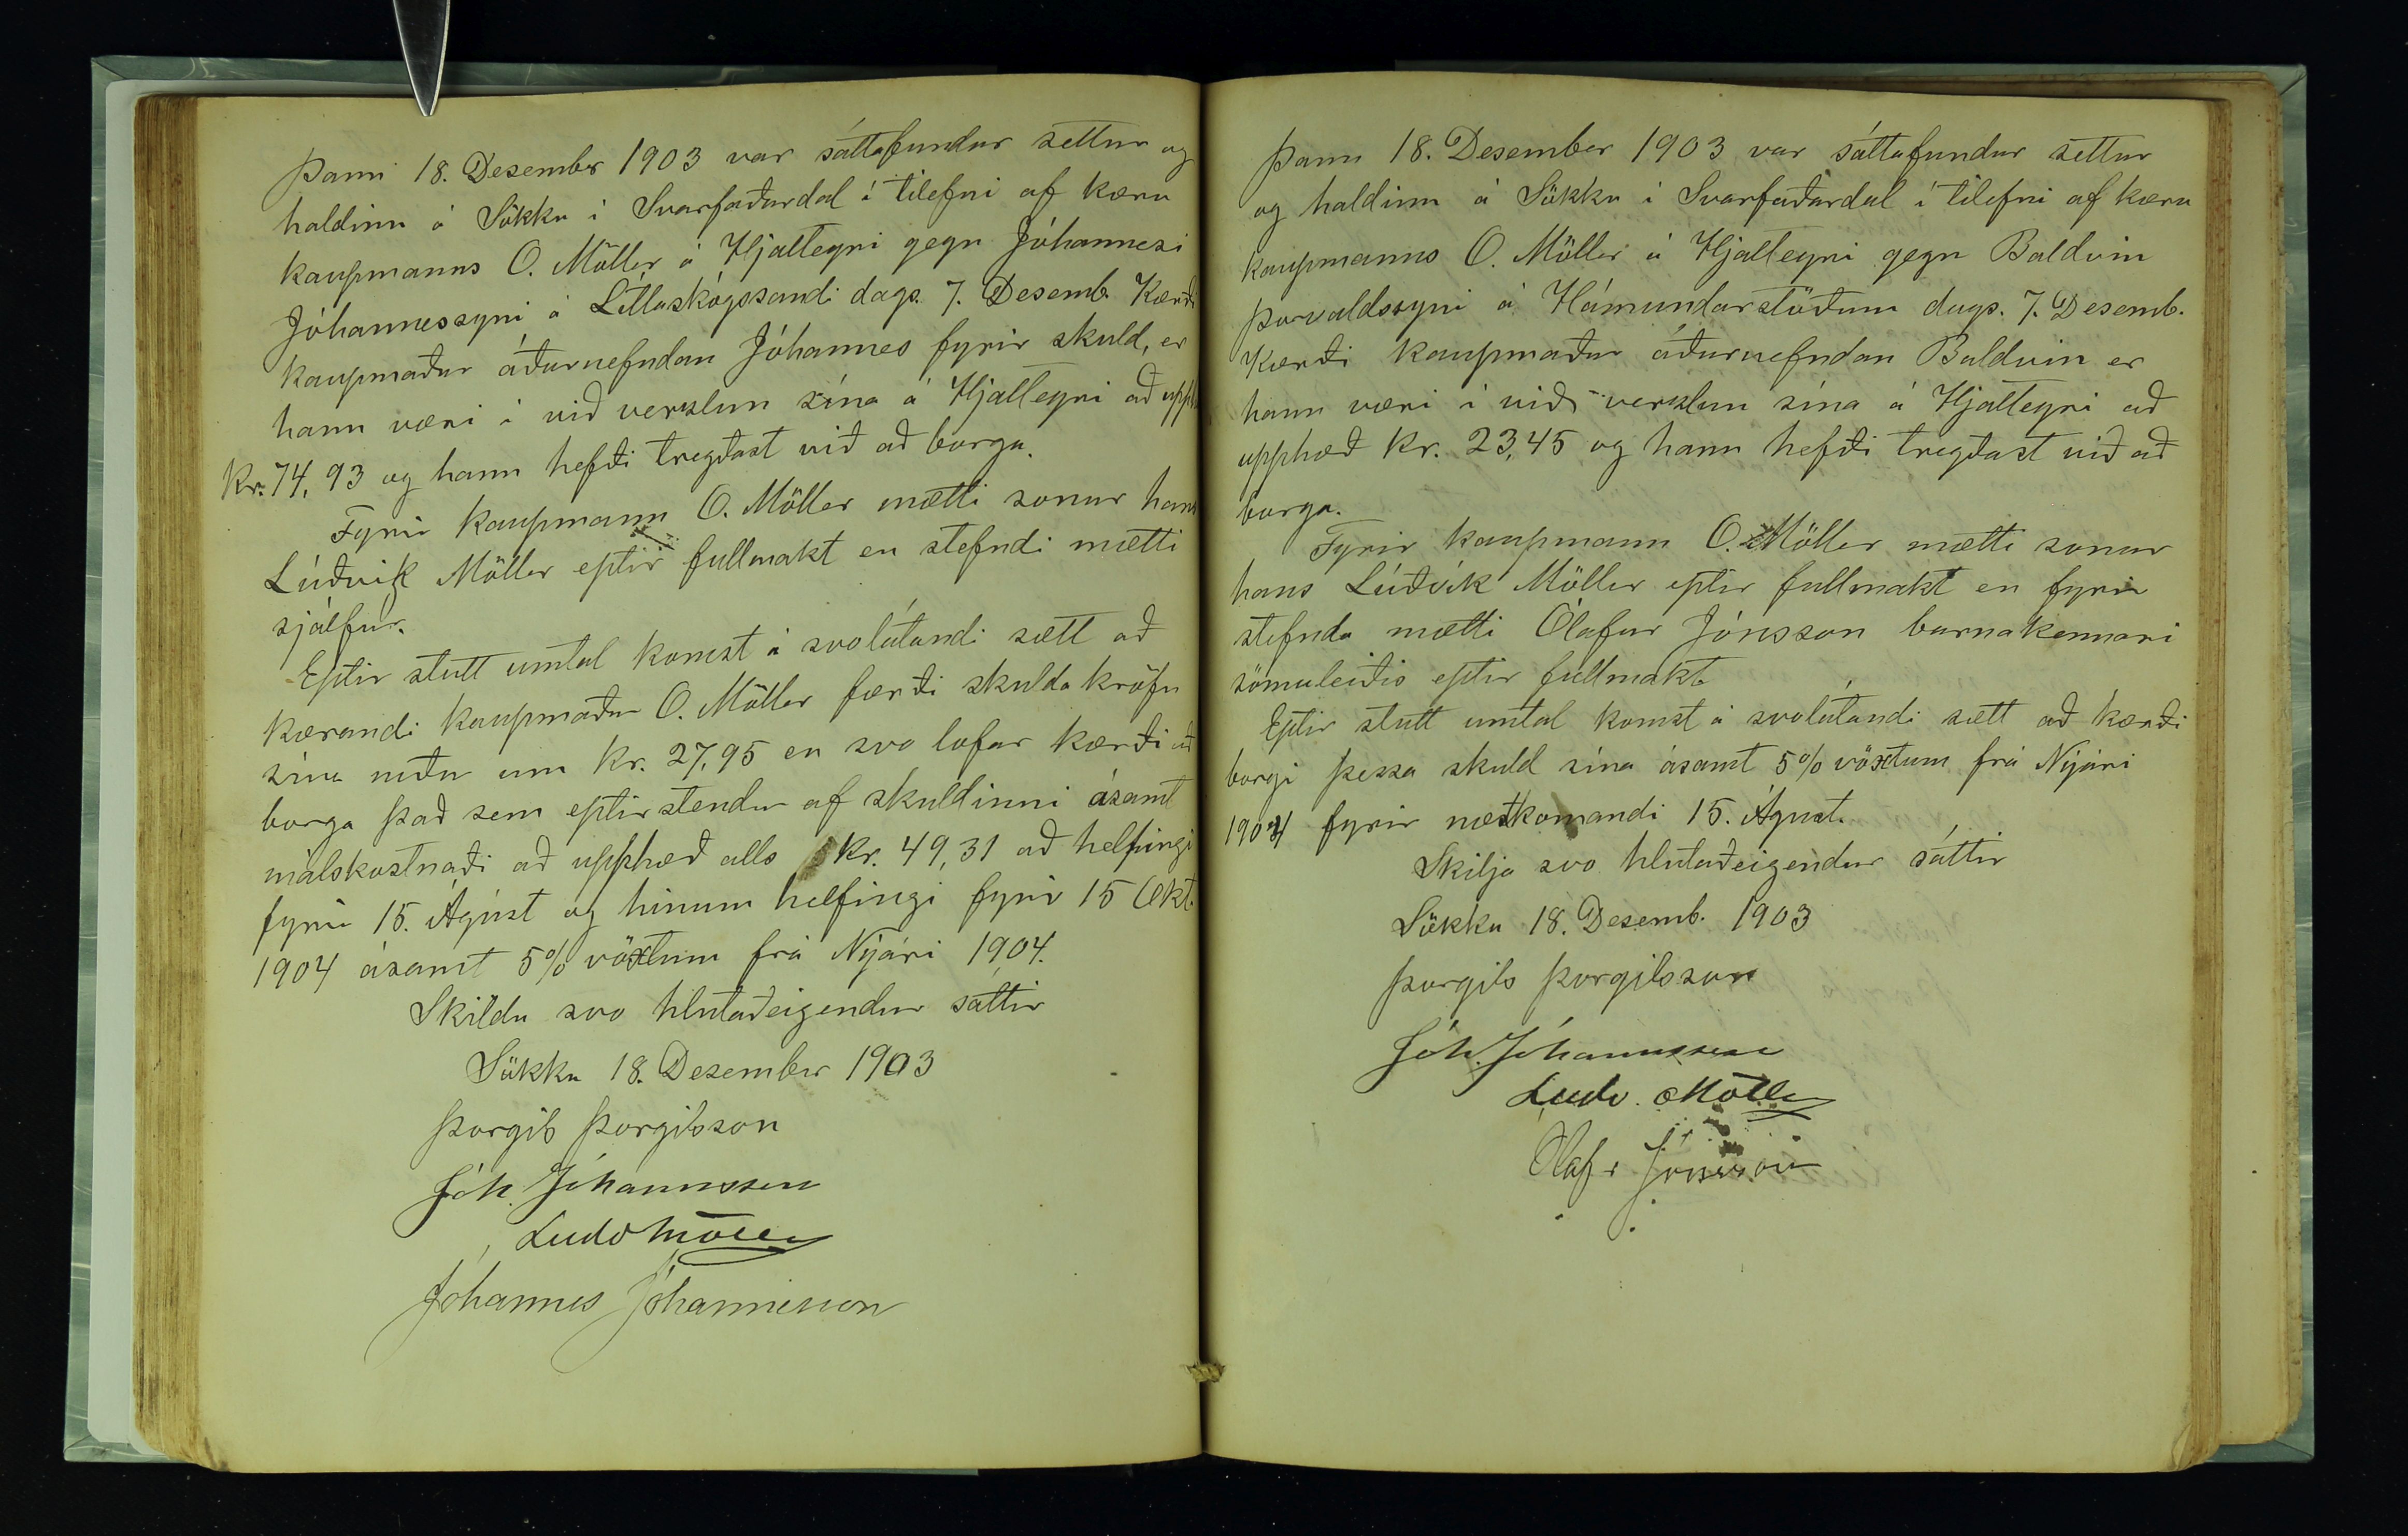 Þann 18. Desember 1903 var sáttafundur settur og
haldinn á Sökku í Svarfaðardal í tilefni af kæru
kaupmanns O. Möller á Hjalteyri gegn Jóhannesi
Jóhannessyni á Litlaskógssandi dags. 7. Desemb. Kærði
kaupmaður áðurnefndan Jóhannes fyrir skuld, er
hann væri í við verslun sína á Hjalteyri að upph
kr. 74,93 og hann hefði tregðast við að borga.
Fyrir kaupmann O. Möller mætti sonur hans
Lúðvik Möller eptir fullmakt en stefndi mætti
sjálfur.
Eptir stutt umtal komst á svolátandi sætt að
kærandi kaupmaður O. Möller færði skuldakröfu
sína niður um kr. 27,95 en svo lofar kærði að
borga það sem eptirstendur af skuldinni ásamt
málskostnaði að upphæð alls kr. 49,31 að helfingi
fyrir 15. Ágúst og hinum helfingi fyrir 15 Okt.
1904 ásamt 5% vöxtum frá Nýári 1904.
Skildu svo hlutaðeigendur sáttir
Sökku 18. Desember 1903
Þorgils Þorgilsson
Jóh. Jóhannsson
Ludv Möller
Jóhannes Jóhannesson
Þann 18. Desember 1903 var sáttafundur settur
og haldinn á Sökku í Svarfaðardal í tilefni af kæru
kaupmanns O. Möller á Hjalteyri gegn Baldvin
Þorvaldssyni á Hámundarstöðum dags. 7. Desemb.
Kærði kaupmaður áðurnefndan Baldvin er
hann væri í við verslun sína á Hjalteyri að
upphæð kr. 23,45 og hann hefði tregðast við að
borga.
Fyrir kaupmann O. Möller mætti sonur
hans Lúðvík Möller eptir fullmakt en fyrir
stefnda mætti Ólafur Jónsson barnakennari
sömuleiðis eptir fullmakt
Eptir stutt umtal komst á svolátandi sætt að kærði
borgi þessa skuld sína ásamt 5% vöxtum frá Nýári
1904 fyrir næstkomandi 15. Ágúst.
Skilja svo hlutaðeigendur sáttir
Sökku 18. Desemb. 1903
Þorgils Þorgilsson
Jóh. Jóhannsson
Ludv. Möller
Olafr Jónsson